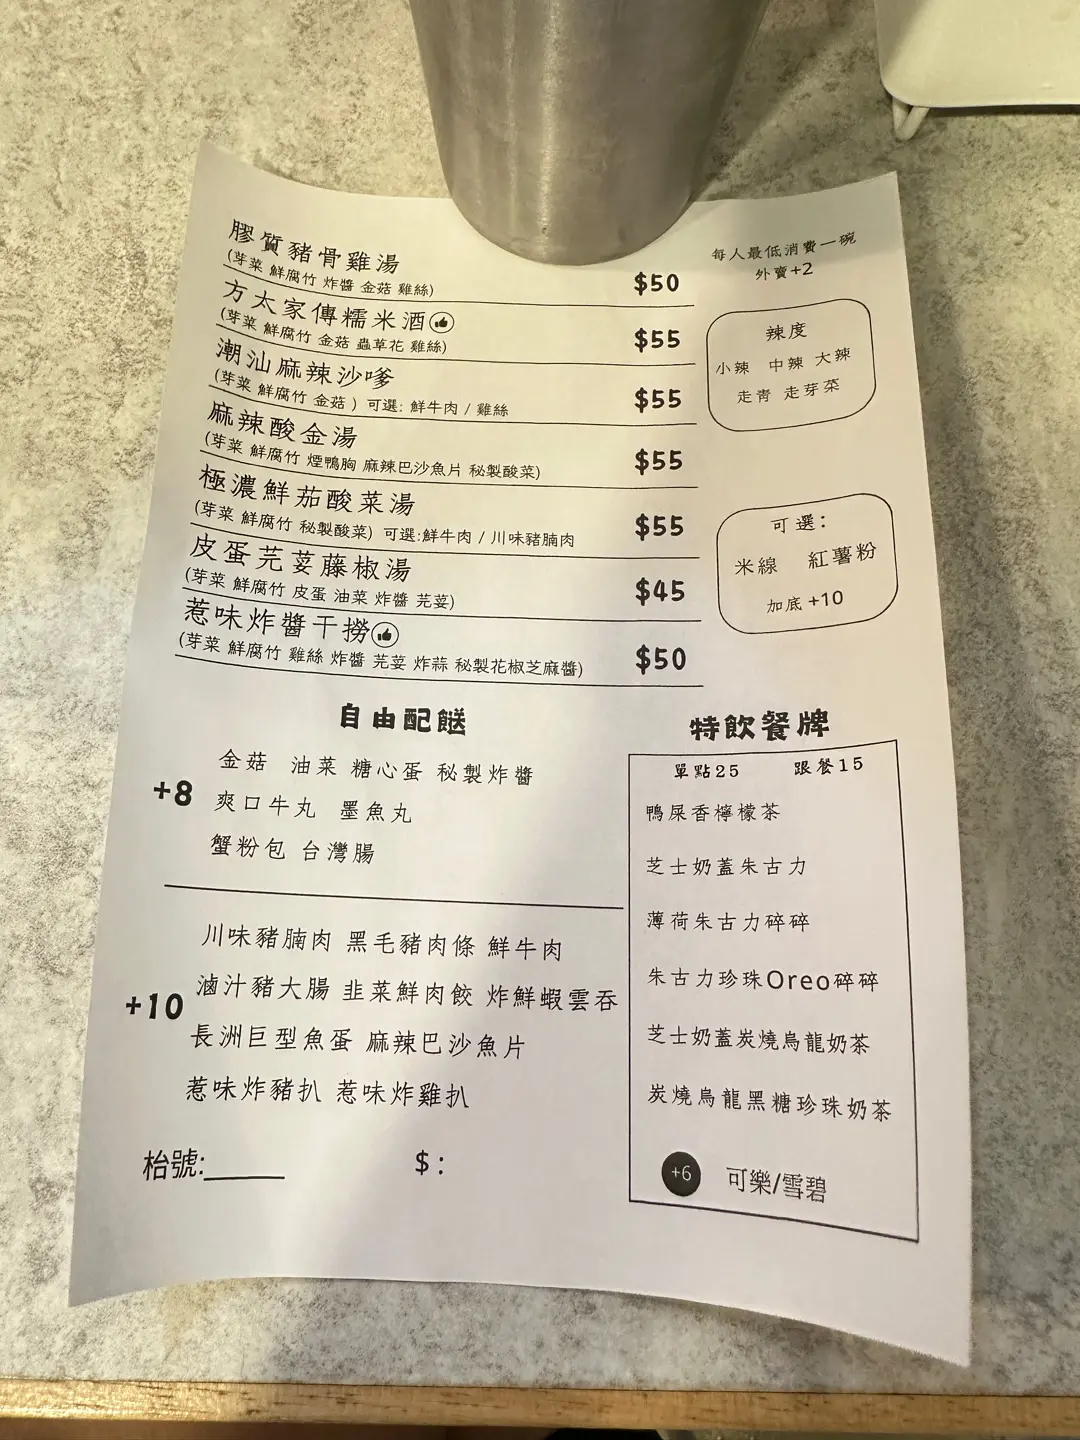 膠質豬骨雞湯
(芽菜 鮮腐竹 炸醬 金菇 雞絲) $50
方太家傳糯米酒
(芽菜 鮮腐竹 金菇 蟲草花 雞絲) $55
潮汕麻辣沙嗲
(芽菜 鮮腐竹 金菇 ) 可選: 鮮牛肉 / 雞絲 $55
麻辣酸金湯
(芽菜 鮮腐竹 煙鴨胸 麻辣巴沙魚片 秘製酸菜) $55
極濃鮮茄酸菜湯
(芽菜 鮮腐竹 秘製酸菜) 可選:鮮牛肉 / 川味豬腩肉 $55
皮蛋芫荽藤椒湯
(芽菜 鮮腐竹 皮蛋 油菜 炸醬 芫荽) $45
惹味炸醬干撈
(芽菜 鮮腐竹 雞絲 炸醬 芫荽 炸蒜 秘製花椒芝麻醬) $50
每人最低消費一碗
外賣+2
辣度
小辣 中辣 大辣
走青 走芽菜
可選:
米線 紅薯粉
加底 +10
自由配餸
+8
金菇 油菜 糖心蛋 秘製炸醬
爽口牛丸 墨魚丸
蟹粉包 台灣腸
+10
川味豬腩肉 黑毛豬肉條 鮮牛肉
滷汁豬大腸 韭菜鮮肉餃 炸鮮蝦雲吞
長洲巨型魚蛋 麻辣巴沙魚片
惹味炸豬扒 惹味炸雞扒
枱號:______ $ :
特飲餐牌
單點25 跟餐15
鴨屎香檸檬茶
芝士奶蓋朱古力
薄荷朱古力碎碎
朱古力珍珠Oreo碎碎
芝士奶蓋炭燒烏龍奶茶
炭燒烏龍黑糖珍珠奶茶
+6 可樂/雪碧